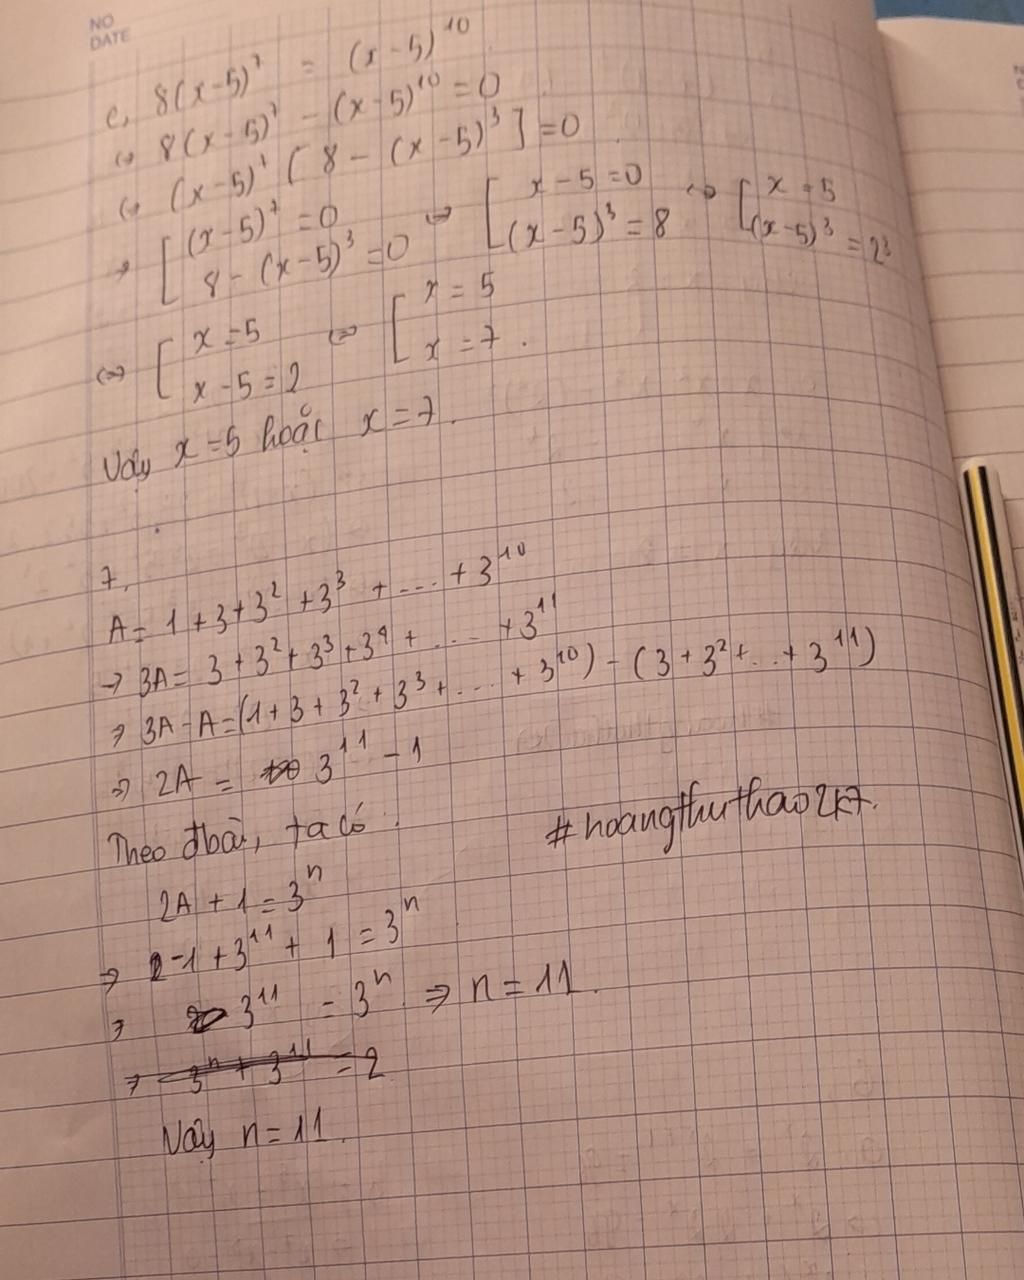 NO
DATE
c, 8(x-5)⁷ = (x-5)¹⁰
⇔ 8(x-5)⁷ - (x-5)¹⁰ = 0
⇔ (x-5)⁷ [ 8 - (x-5)³ ] = 0
⇒ [ (x-5)⁷ = 0 ⇔ [ x-5 = 0 ⇔ [ x = 5
8 - (x-5)³ = 0 (x-5)³ = 8 (x-5)³ = 2³
⇔ [ x = 5 ⇔ [ x = 5
x-5 = 2 x = 7.
Vậy x = 5 hoặc x = 7.
7,
A = 1 + 3 + 3² + 3³ + ... + 3¹⁰
→ 3A = 3 + 3² + 3³ + 3⁴ + ... + 3¹¹
⇒ 3A - A = (1 + 3 + 3² + 3³ + ... + 3¹⁰) - (3 + 3² + ... + 3¹¹)
⇒ 2A = 3¹¹ - 1
Theo đbài, ta có:
#hoangthuthao2k7.
2A + 1 = 3ⁿ
⇒ -1 + 3¹¹ + 1 = 3ⁿ
⇒ 3¹¹ = 3ⁿ ⇒ n = 11.
⇒ 3ⁿ + 3¹¹ = 2
Vậy n = 11.